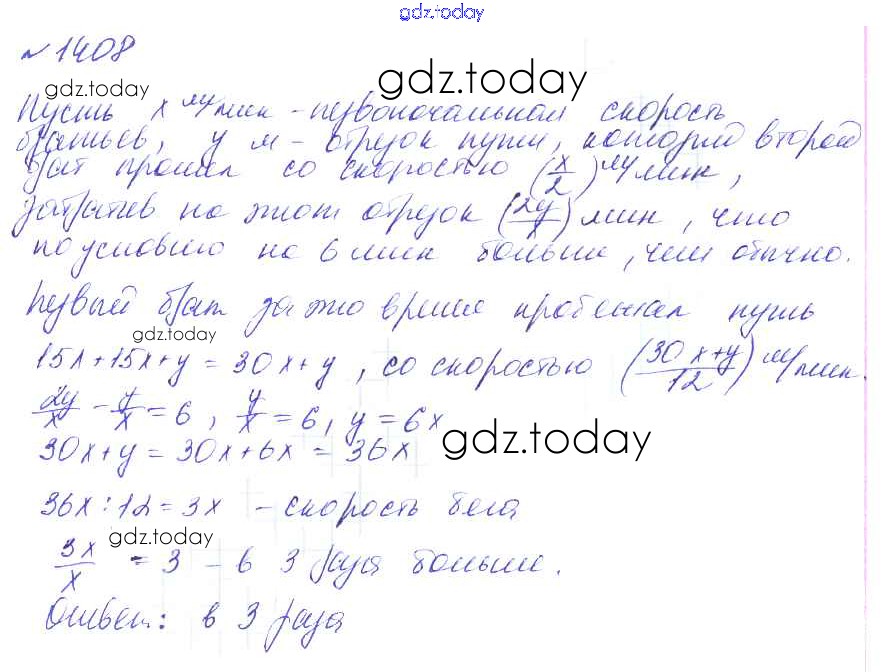 gdz.today
№ 1408
gdz.today
gdz.today
Пусть x м/мин - первоначальная скорость
братьев, y м - отрезок пути, который второй
брат прошел со скоростью (x/2) м/мин,
затратив на этот отрезок (2y/x) мин, что
по условию на 6 мин больше, чем обычно.
Первый брат за это время пробежал путь
gdz.today
15x+15x+y = 30x+y, со скоростью (30x+y/12) м/мин.
2y/x - y/x = 6, y/x = 6, y = 6x
gdz.today
30x+y = 30x+6x = 36x
36x : 12 = 3x - скорость бега
gdz.today
3x/x = 3 - в 3 раза больше.
Ответ: в 3 раза